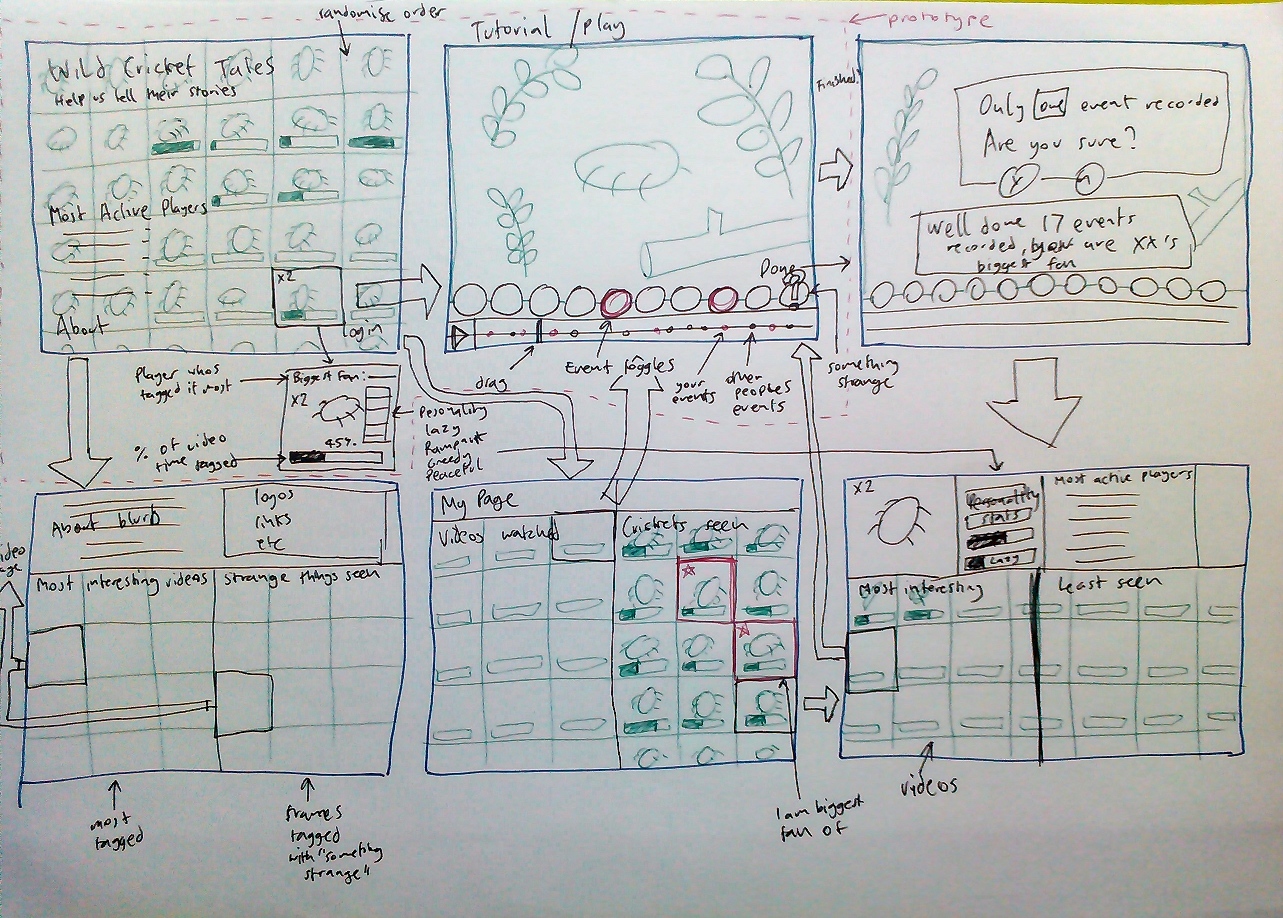 randomise order
prototype
Wild Cricket Tales
Help us tell their stories
Most Active Players
x2
About
login
Tutorial / Play
Finished?
Done
Only one event recorded
Are you sure?
Y
N
Well done 17 events
recorded, you are XX's
biggest fan
drag
Event toggles
your
events
other
peoples
events
something
strange
Player whos
tagged it most
% of video
time tagged
Biggest fan:
x2
45%
Personality
lazy
Rampant
Greedy
Peaceful
About blurb
logos
links
etc
Most interesting videos
strange things seen
most
tagged
frames
tagged
with "something
strange"
My Page
Videos watched
Crickets seen
I am biggest
fan of
x2
Personality
stats
Lazy
Most active players
Most interesting
Least seen
videos